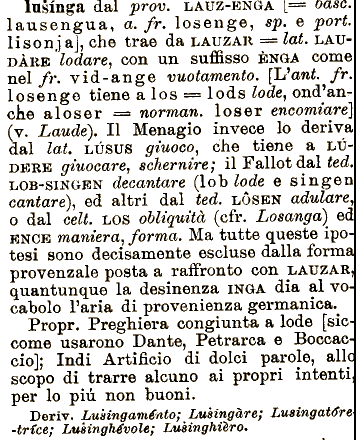 lusinga dal prov. LAUZ-ENGA [= basc.
lausengua, a. fr. losenge, sp. e port.
lisonja], che trae da LAUZAR = lat. LAU-
DÀRE lodare, con un suffisso ÈNGA come
nel fr. vid-ange vuotamento. [L'ant. fr.
losenge tiene a los = lods lode, ond'an-
che aloser = norman. loser encomiare]
(v. Laude). Il Menagio invece lo deriva
dal lat. LÚSUS giuoco, che tiene a LÚ-
DERE giuocare, schernire; il Fallot dal ted.
LOB-SINGEN decantare (lob lode e singen
cantare), ed altri dal ted. LÔSEN adulare,
o dal celt. LOS obliquità (cfr. Losanga) ed
ENCE maniera, forma. Ma tutte queste ipo-
tesi sono decisamente escluse dalla forma
provenzale posta a raffronto con LAUZAR,
quantunque la desinenza INGA dia al vo-
cabolo l'aria di provenienza germanica.
Propr. Preghiera congiunta a lode [sic-
come usarono Dante, Petrarca e Boccac-
cio]; Indi Artificio di dolci parole, allo
scopo di trarre alcuno ai propri intenti,
per lo più non buoni.
Deriv. Lusingaménto; Lusingàre; Lusingatóre
-tríce; Lusinghévole; Lusinghièro.